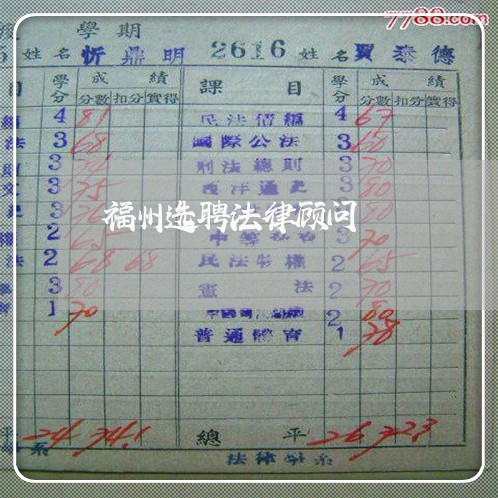 7788.com
學期
姓名 忻鼎明 2616 姓名 賈泰德
目 學分 成績 課目 學分 成績
分數 扣分 實得 分數 扣分 實得
4 81 民法債編 4 67
法 3 68 國際公法 3 60
3 刑法總則 3 70
3 75 西洋通史 3 80
3 80
福州选聘法律顾问
2 65 3 70
法 2 68 68 民法物權 2 65
3 80 憲法 2 70
1 70 2 80
普通體育 1 78
平 24 74.1 總平 26 72.3
系 法律學系